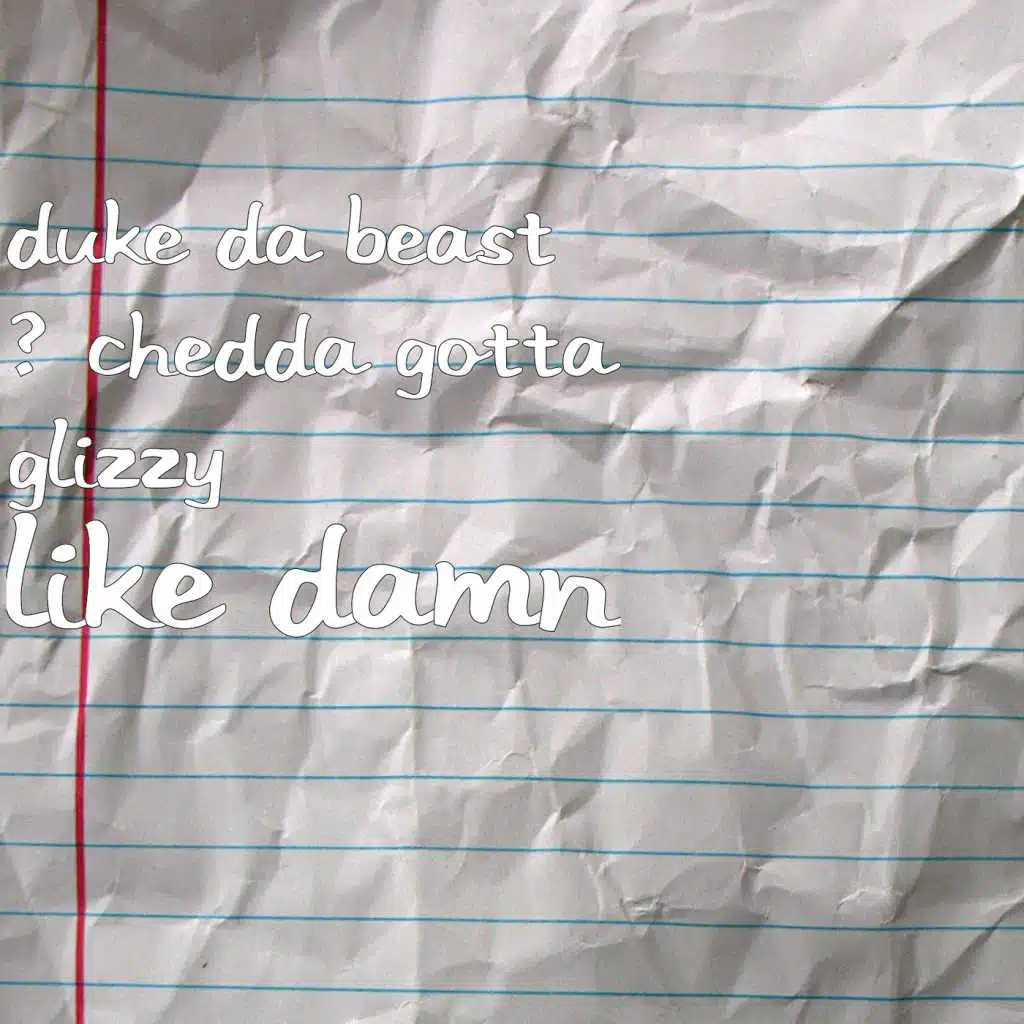 duke da beast
? chedda gotta
glizzy
like damn